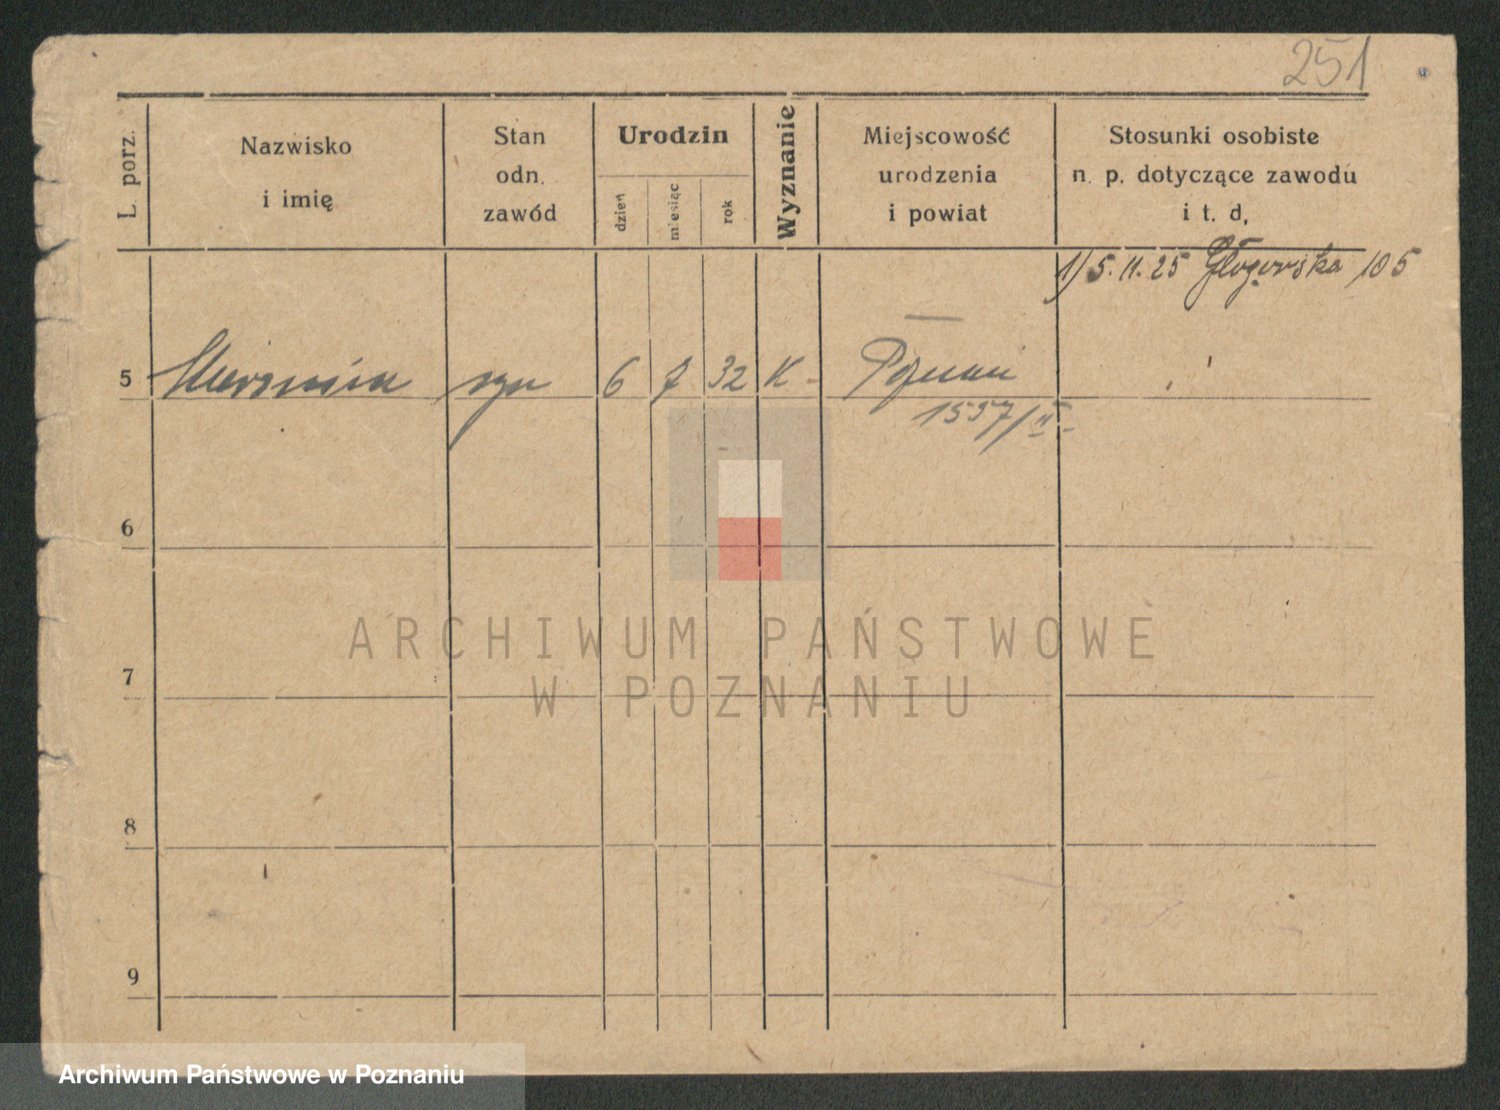 251
L. porz.
Nazwisko
i imię
Stan
odn.
zawód
Urodzin
dzień
miesiąc
rok
Wyznanie
Miejscowość
urodzenia
i powiat
Stosunki osobiste
n. p. dotyczące zawodu
i t. d,
1) 5. 11. 25 Głogowska 105
5 syn 6 7 32 K - Poznań
1557/II
6
7
8
9
ARCHIWUM PAŃSTWOWE
W POZNANIU
Archiwum Państwowe w Poznaniu